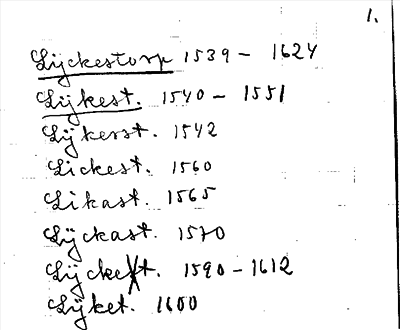 1.
Lÿckestorp 1539 – 1624
Lÿkest. 1540 – 1551
Lÿkerst. 1542
Lickest. 1560
Likast. 1565
Lÿckast. 1570
Lÿcket. 1590 – 1612
Lÿket. 1600